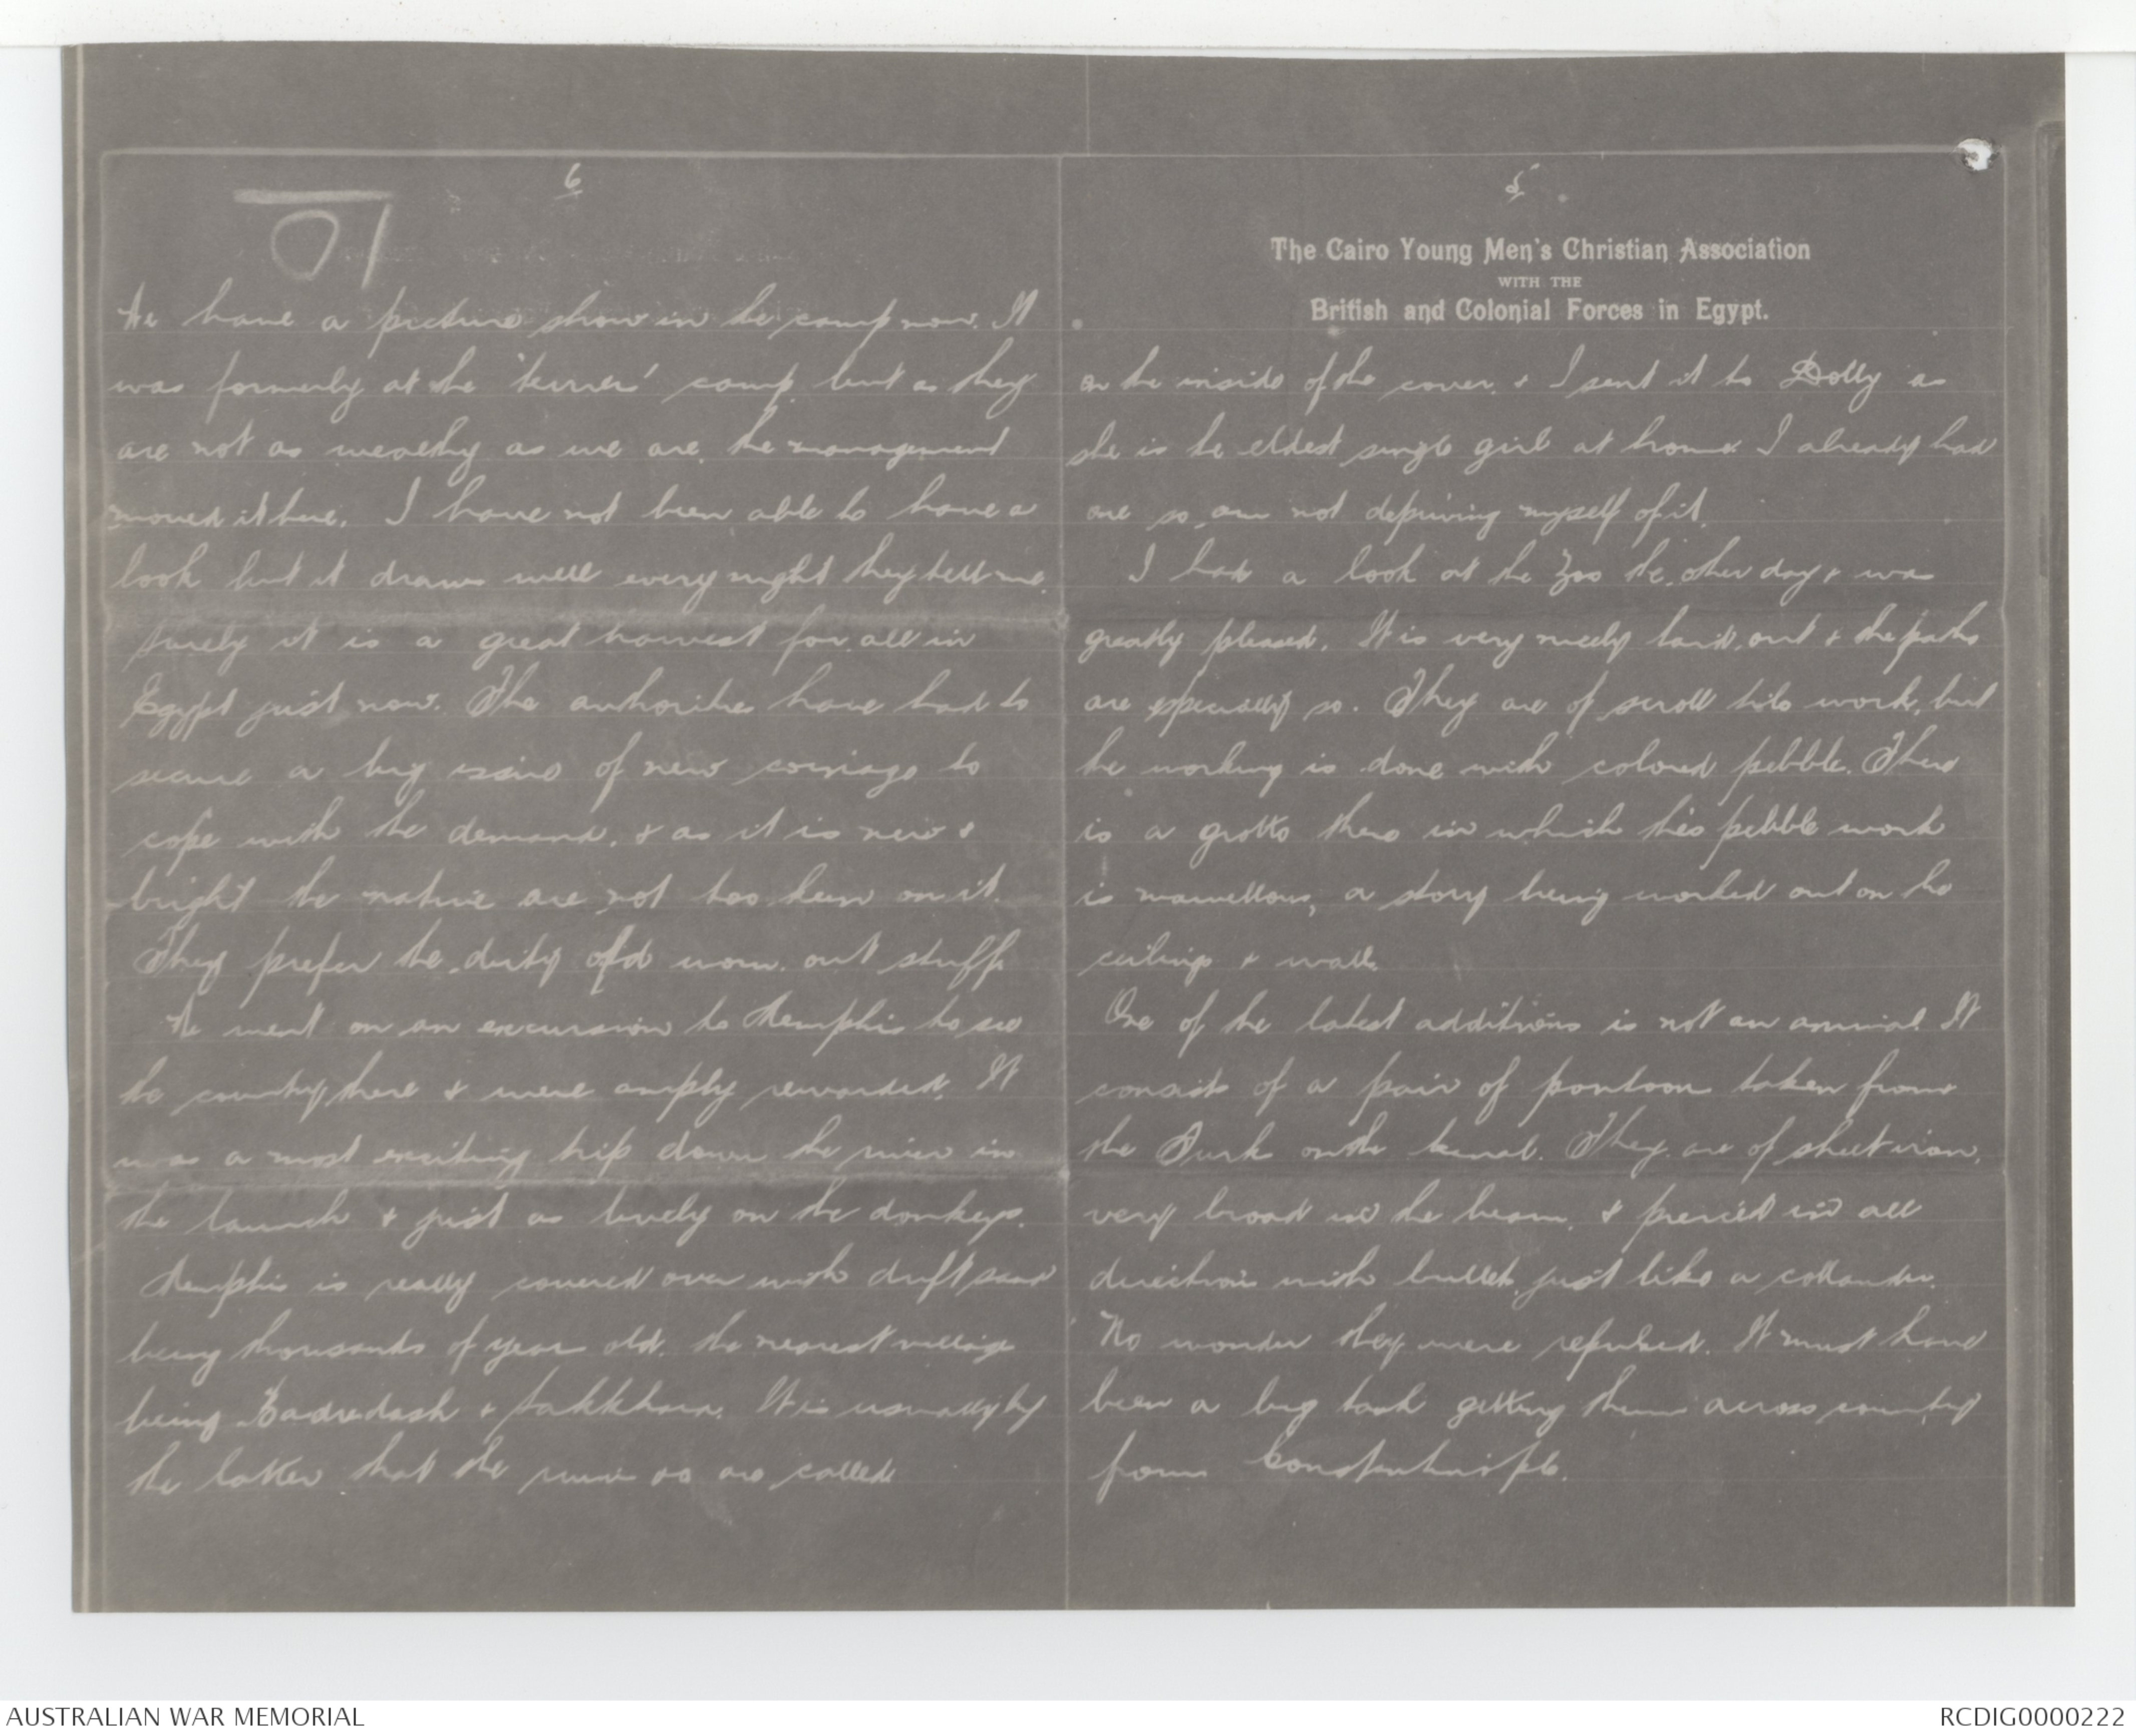 5
The Cairo Young Men's Christian Association
WITH THE
British and Colonial Forces in Egypt.
on the inside of the cover. & I sent it to Dolly as
she is the eldest single girl at home. I already had
one so, am not depriving myself of it.
I had a look at the Zoo the other day & was
greatly pleased. It is very nicely laid out & the paths
are especially so. They are of scroll tile work, but
the working is done with colored pebble. There
is a grotto there in which this pebble work
is marvellous, a story being worked out on the
ceilings & walls
One of the latest additions is not an animal. It
consists of a pair of pontoons taken from
the Turk on the Canal. They are of sheet iron,
very broad in the beam, & pierced in all
directions with bullets, just like a collander.
No wonder they were repulsed. It must have
been a big task getting them across country
from Constantinople.
6
10
We have a picture show in the camp now. It
was formerly at the 'terriers' camp, but as they
are not as wealthy as we are, the management
moved it here. I have not been able to have a
look but it draws well every night they tell me.
Surely it is a great harvest for all in
Egypt just now. The authorities have had to
secure a big issue of new coinage to
cope with the demand, & as it is new &
bright the natives are not too keen on it.
They prefer the dirty old worn out stuff.
We went on an excursion to Memphis to see
the country there & were amply rewarded. It
was a most exciting trip down the river in
the launch & just as lively on the donkeys.
Memphis is really covered over with drift sand
being thousands of years old, the nearest village
being Badredash & Sakkhara. It is usually by
the latter that the ruins are called